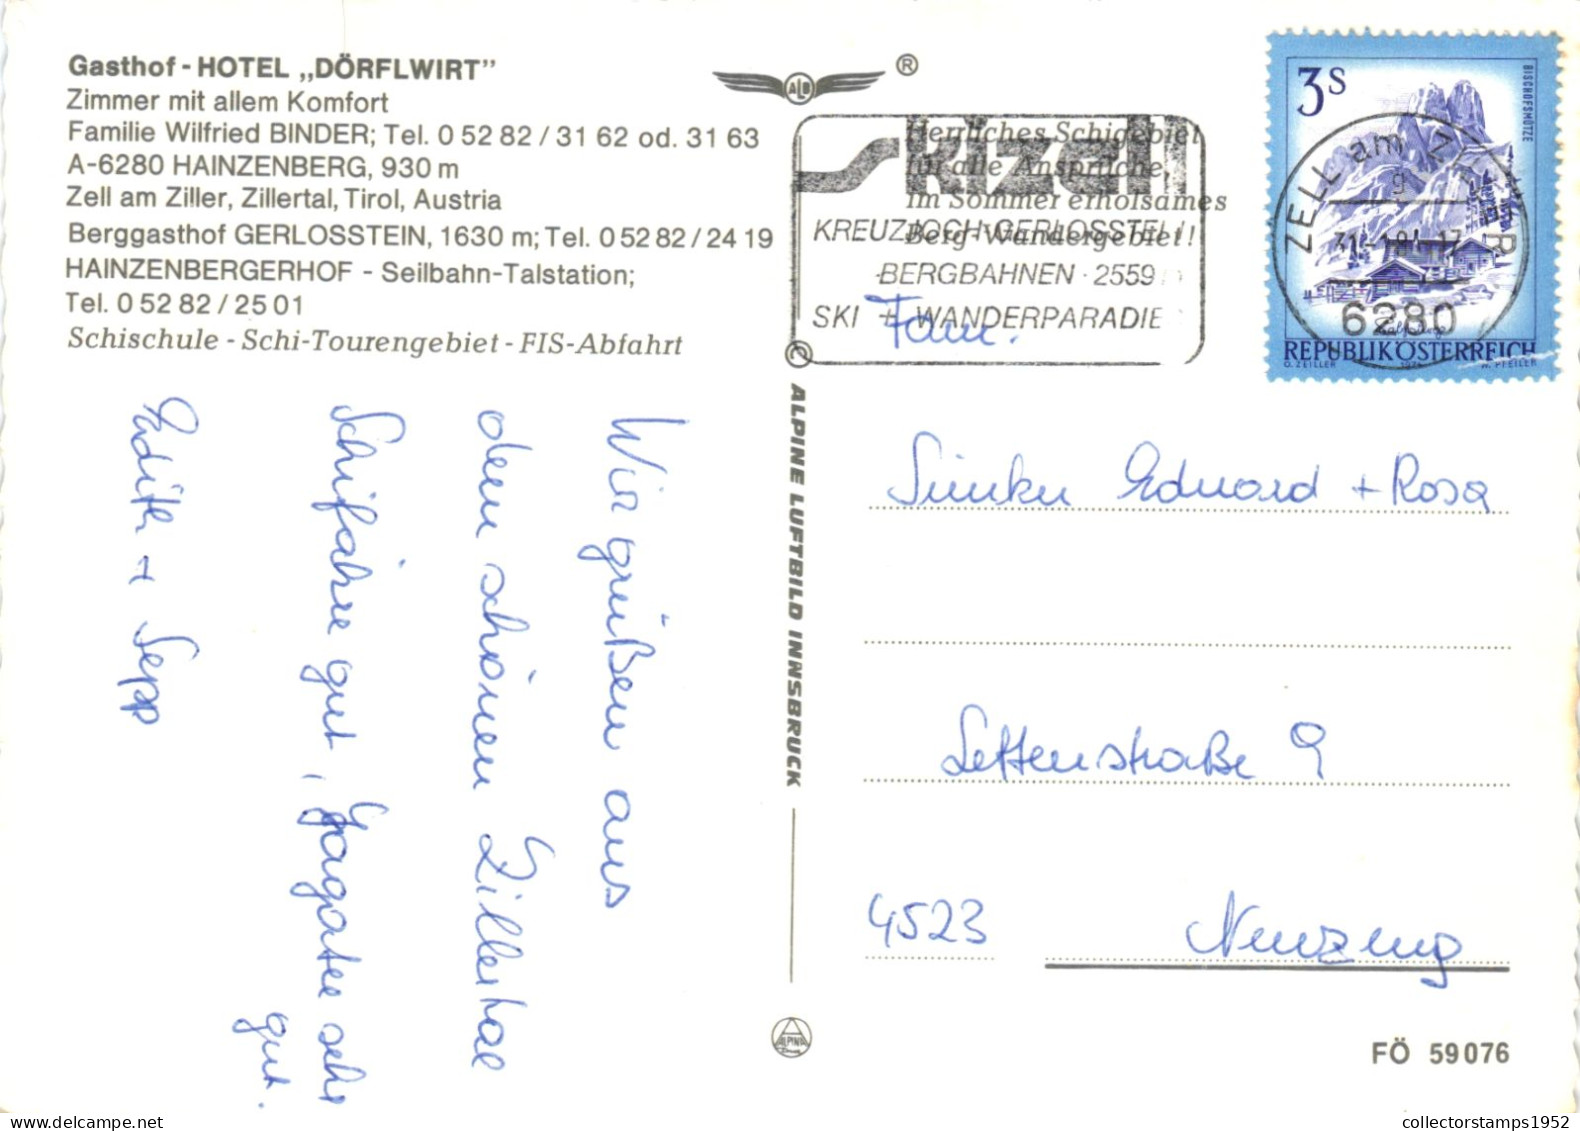 Gasthof - HOTEL „DÖRFLWIRT"
Zimmer mit allem Komfort
Familie Wilfried BINDER; Tel. 0 52 82 / 31 62 od. 31 63
A-6280 HAINZENBERG, 930 m
Zell am Ziller, Zillertal, Tirol, Austria
Berggasthof GERLOSSTEIN, 1630 m; Tel. 0 52 82 / 24 19
HAINZENBERGERHOF - Seilbahn-Talstation;
Tel. 0 52 82 / 25 01
Schischule - Schi-Tourengebiet - FIS-Abfahrt
Wir grüßen aus
dem schönen Zillertal
Schifahre gut,
sehr
gut.
Edith + Sepp
ALB ®
Herrliches Schigebiet
für alle Ansprüche,
im Sommer erholsames
Berg-Wandergebiet!
skizell
KREUZJOCH-GERLOSSTEIN
BERGBAHNEN · 2559
SKI + WANDERPARADIE
3S
BISCHOFSMÜTZE
REPUBLIK ÖSTERREICH
O. ZEILLER 1974 A. PFEILER
ZELL am ZILLER
g
31.-1.84-17
6280
ALPINE LUFTBILD INNSBRUCK
ALPINA
Fam.
Eduard + Rosa
Lettenstraße 9
4523 Neuzeug
FÖ 59 076
collectorstamps1952